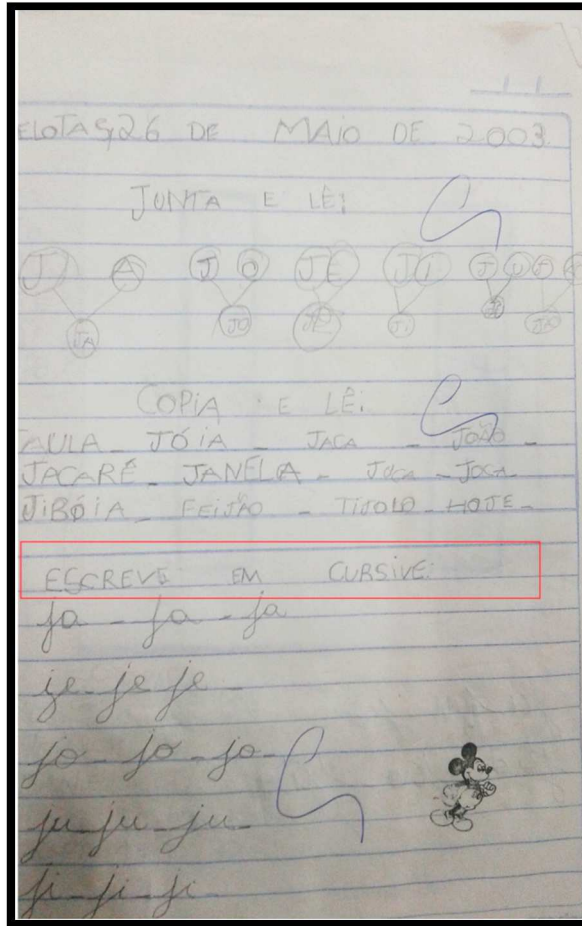 ELOTAS, 26 DE MAIO DE 2003.
JUNTA E LÊ:
J A J O JE JI J
JA JO JE JI
COPIA E LÊ:
AULA - JÓIA - JACA - JOÃO -
JACARÉ - JANELA - JUCA - JOCA
JIBÓIA - FEIJÃO - TIJOLO - HOJE -
ESCREVE EM CURSIVE:
ja - ja - ja
je - je je -
jo - jo - jo -
ju - ju - ju -
ji - ji - ji